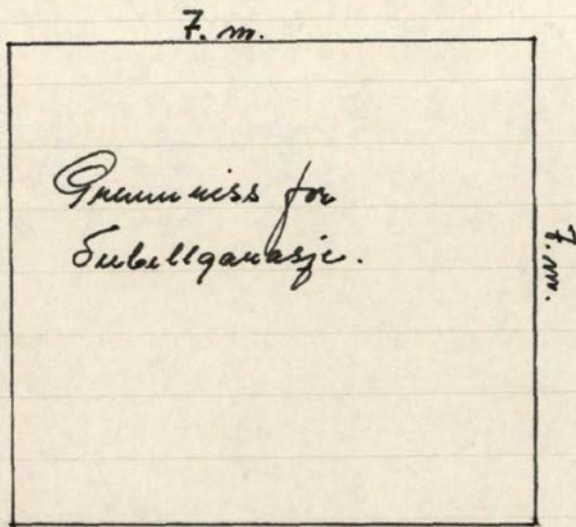 7. m.
Grunnriss for
Dubellgarasje.
7. m.